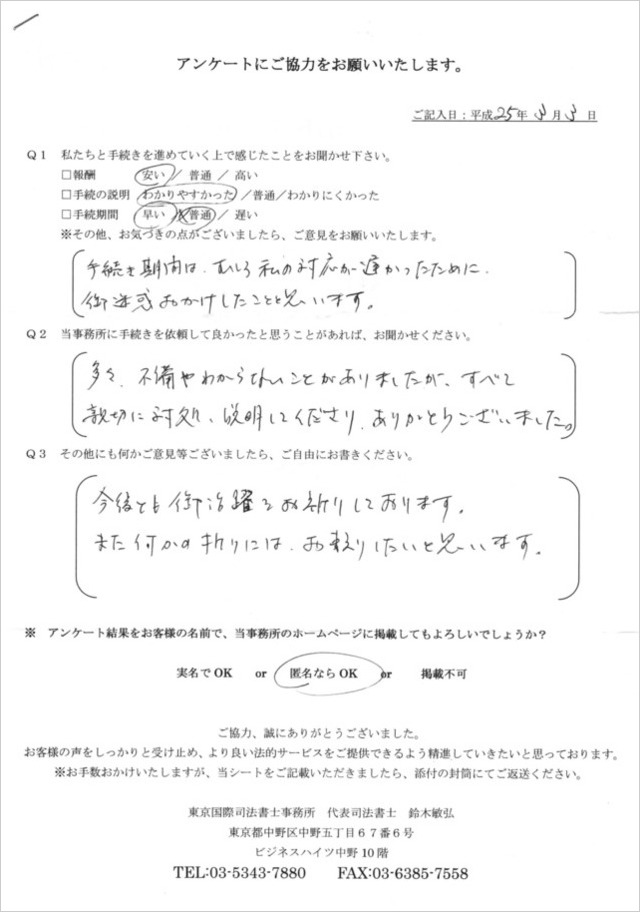 アンケートにご協力をお願いいたします。
ご記入日：平成25年3月3日
Q1 私たちと手続きを進めていく上で感じたことをお聞かせ下さい。
□報酬 安い ／ 普通 ／ 高い
□手続の説明 わかりやすかった ／普通／わかりにくかった
□手続期間 早い ／ 普通 ／ 遅い
※その他、お気づきの点がございましたら、ご意見をお願いいたします。
手続き期間は、むしろ私の対応が遅かったために、
御迷惑おかけしたことと思います。
Q2 当事務所に手続きを依頼して良かったと思うことがあれば、お聞かせください。
多々、不備やわからないことがありましたが、すべて
親切に対処、説明してくださり、ありがとうございました。
Q3 その他にも何かご意見等ございましたら、ご自由にお書きください。
今後とも御活躍をお祈りしております。
また何かの折りには、お頼りしたいと思います。
※ アンケート結果をお客様の名前で、当事務所のホームページに掲載してもよろしいでしょうか？
実名でOK or 匿名ならOK or 掲載不可
ご協力、誠にありがとうございました。
お客様の声をしっかりと受け止め、より良い法的サービスをご提供できるよう精進していきたいと思っております。
※お手数おかけいたしますが、当シートをご記載いただきましたら、添付の封筒にてご返送ください。
東京国際司法書士事務所 代表司法書士 鈴木敏弘
東京都中野区中野五丁目６７番６号
ビジネスハイツ中野10階
TEL:03-5343-7880 FAX:03-6385-7558